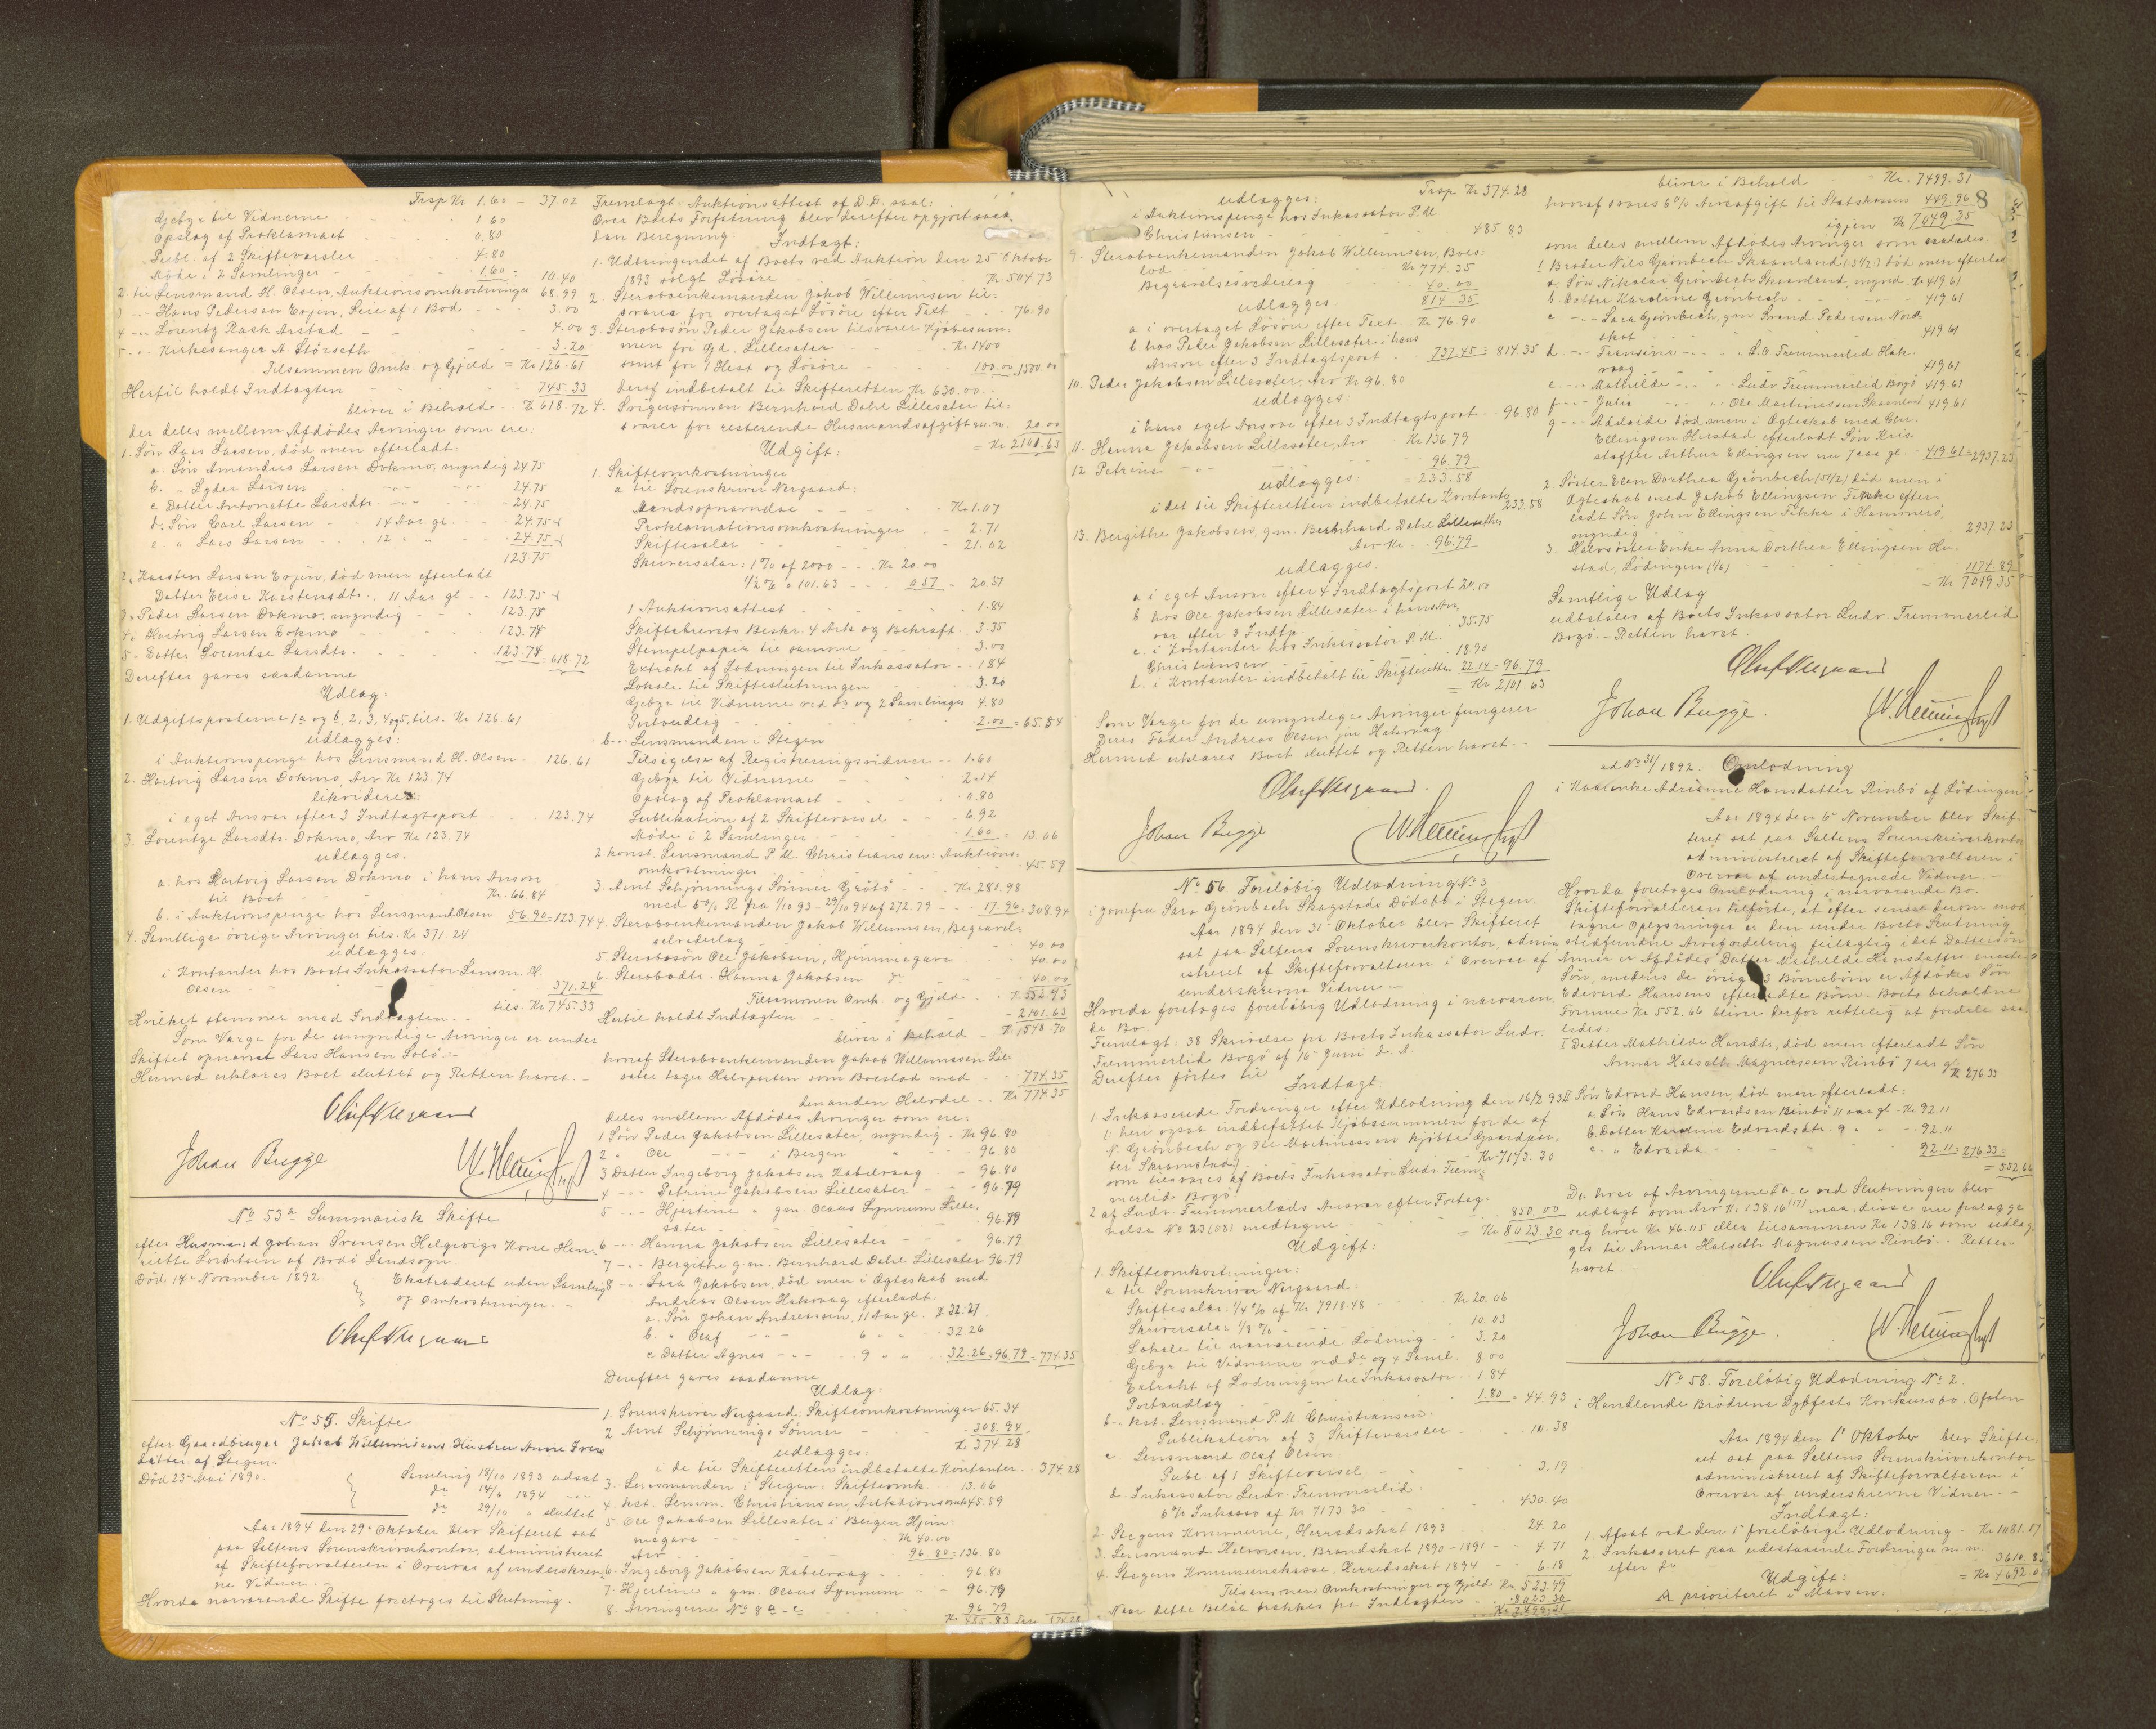 Trsp Kr 1.60 - 37.02
Gebyr til Vidnerne - - 1.60
Opslag af Proklamaet - - 0.80
Publ. af 2 Skiftevarsler 4.80
Møde i 2 Samlinger - - 1.60 = 10.40
2. til Lensmand H. Olsen, Auktionsomkostninger 68.99
3 - - Hans Pedersen Evjen, Leie af 1 Bod - - 3.00
4 - - Lorentz Rask Arstad - - 4.00
5 - - Kirkesanger A. Störseth - - 3.20
Tilsammen Omk. og Gjeld = Kr 126.61
Hertil holdt Indtægten - - 745.33
bliver i Behold - - Kr 618.72
der deles mellem Afdödes Arvinger som ere:
1. Sön Lars Larsen, död men efterladt:
a. Sön Amandus Larsen Dokmo, myndig 24.75
b. " Lyder Larsen - - 24.75
c. Datter Antonette Larsdtr. - - 24.75
d. Sön Carl Larsen - - 14 Aar gl. - - 24.75
e. " Lars Larsen - - 12 " " - 24.75
123.75
2. Karsten Larsen Evjen, död men efterladt
Datter Elise Karstensdtr., 11 Aar gl - - 123.75
3. Peder Larsen Dokmo, myndig - - 123.74
4. Hartvig Larsen Dokmo - - 123.74
5. Datter Lorentse Larsdtr. - - 123.74 = 618.72
Derefter gaves saadanne
Udlæg:
1. Udgiftsposterne 1a og b, 2, 3, 4 og 5, tils. Kr. 126.61
udlægges:
i Auktionspenge hos Lensmand H. Olsen - - 126.61
2. Hartvig Larsen Dokmo, Arv Kr 123.74
likvideres:
i eget Ansvar efter 3 Indtægtspost - - 123.74
3. Lorentze Larsdtr. Dokmo, Arv Kr 123.74
udlægges.
a. hos Hartvig Larsen Dokmo i hans Ansvar
til Boet - - Kr. 66.84
b. i Auktionspenge hos Lensmand Olsen 56.90 = 123.74
4. Samtlige övrige Arvinger tils. Kr 371.24
udlægges.
i Kontanter hos Boets Inkassator Lensm. H.
Olsen - - 371.24
tils. Kr 745.33
Hvilket stemmer med Indtægten. -
Som Værge for de umyndige Arvinger er under
Skiftet opnævnt Lars Hansen Solö. -
Hermed erklæres Boet sluttet og Retten hævet. -
Oluf Nergaard
Johan Bugge
No 53a Summarisk Skifte
efter Husmand Johan Svensen Helgevigs Kone Hen-
riette Lorentsen af Bodö Landsogn.
Död 14 November 1892.
Ekstraderet uden Samling
og Omkostninger. -
Oluf Nergaard
No 55. Skifte
efter Gaardbruger Jakob Willumsens Hustru Anne Pers-
datter af Steigen.
Död 23 Mai 1890.
Samling 18/10 1893 udsat
do 14/6 1894 - -
do 29/10 " sluttet
Aar 1894 den 29 Oktober blev Skifteret sat
paa Saltens Sorenskriverkontor, administreret
af Skifteforvalteren i Overvær af underskrev-
ne Vidner. -
Hvorda nærværende Skifte foretoges til Slutning.
Fremlagt: Auktionsattest af D.D. saal:
Over Boets Forfatning blev derefter opgjort saa-
dan Beregning. Indtægt:
1. Udbringendet af Boets ved Auktion den 25 Oktober
1893 solgt Lösöre - - Kr. 504.73
2. Sterboenkemanden Jakob Willumsen til-
svarer for overtaget Lösöre efter Taxt - - 76.90
3. Sterbosön Peder Jakobsen tilsvarer Kjöbesum-
men for Gd. Lillesæter - - Kr. 1400
samt for 1 Hest og Lösöre - - 100.00, 1500.00
deraf indbetalt til Skifteretten Kr. 630.00. -
4. Svigersönnen Bernhard Dahl Lillesæter til-
svarer for resterende Husmandsafgift m.m. 20.00
= Kr. 2101.63
Udgift:
1. Skifteomkostninger
a til Sorenskriver Nergaard:
Mandsopnævnelse - - Kr. 1.07
Proklamationsomkostninger - 2.71
Skiftesalær - - 21.02
Skriversalær: 1% af 2000 - - Kr. 20.00
1/2 % a 101.63 - - 0.51 = 20.51
1 Auktionsattest - - 1.84
Skiftebrevets Beskr. 4 Ark og Bekræft. - 3.35
Stempelpapir til samme - - 3.00
Extrakt af Lodningen til Inkassator - - 1.84
Lokale til Skifteslutningen - - 3.20
Gebyr til Vidnerne ved do og 2 Samlinger 4.80
Portoudlæg - - 2.00 = 65.34
b - - Lensmanden i Steigen
Tilsigelse af Registreringsvidner - - 1.60
Gebyr til Vidnerne - - 2.14
Opslag af Proklamaet - - 0.80
Publikation af 2 Skiftevarsel - - 6.92
Møde i 2 Samlinger - - 1.60 = 13.06
2. konst. Lensmand P. M. Christiansen: Auktions-
omkostninger - - 45.59
3. Arnt Schjönnings Sönner Grötö - - Kr. 281.98
med 5% R fra 1/10 93 - 29/10 94 af 272.79 - - 17.96 = 308.94
4. Sterboenkemanden Jakob Willumsen, Begravel-
selvederlag - - 40.00
5. Sterbosön Ole Jakobsen, Hjemmegave - - 40.00
6. Sterbodtr. Hanna Jakobsen do - - 40.00
Tilsammen Omk. og Gjeld - - Kr. 552.93
Hertil holdt Indtægten - - 2101.63
bliver i Behold - Kr. 1548.70
hvoraf Sterboenkemanden Jakob Willumssen Lil-
sæter tager Halvparten som Boeslod med - - 774.35
den anden Halvdel - - Kr 774.35
deles mellem Afdödes Arvinger som ere:
1 Sön Peder Jakobsen Lillesæter, myndig - Kr 96.80
2 " Ole - - i Bergen - 96.80
3 Datter Ingeborg Jakobsen Kabelvaag - - 96.80
4 - - Petrine Jakobsen Lillesæter - - 96.79
5 - - Hjertine " gm. Olaus Lynnum Lille-
sæter - - 96.79
6 - - Hanna Jakobsen Lillesæter - - 96.79
7 - - Bergithe g.m. Bernhard Dahl Lillesæter 96.79
8 - - Sara Jakobsen, död men i Ægteskab med
Andreas Olsen Halsvaag efterladt:
a. Sön Johan Andreassen, 11 Aar gl. Kr 32.27
b. " Olaf - - 6 " " 32.26
c Datter Agnes - - 9 " " 32.26 = 96.79 = 774.35
Derefter gaves saadanne
Udlæg:
1. Sorenskriver Nergaard: Skifteomkostninger 65.34
2 Arnt Schjönnings Sönner - - 308.94
Kr. 374.28
udlægges:
i de til Skifteretten indbetalte Kontanter - - 374.28
3. Lensmanden i Steigen: Skifteomk. - - 13.06
4. kst. Lensm. Christiansen, Auktionsomk. 45.59
5. Ole Jakobsen Lillesæter i Bergen Hjem-
megave - - Kr 40.00
Arv - - 96.80 = 136.80
6. Ingeborg Jakobsen Kabelvaag - - 96.80
7. Hjertine " gm. Olaus Lynnum - - 96.79
8. Arvingerne No 8 a - c - - 96.79
Kr 485.83 374.28
Trsp Kr 374.28
udlægges:
i Auktionspenge hos Inkassator P. M.
Christiansen - - 485.83
9. Sterboenkemanden Jakob Willumsen, Boes-
lod - - Kr 774.35
Begravelsesvederlag - - 40.00
814.35
udlægges:
a i overtaget Lösöre efter Taxt - Kr 76.90
b. hos Peder Jakobsen Lillesæter i hans
Ansvar efter 3 Indtægtspost - - 737.45 = 814.35
10. Peder Jakobsen Lillesæter, Arv Kr 96.80
udlægges:
i hans eget Ansvar efter 3 Indtægtspost - - 96.80
11. Hanna Jakobsen Lillesæter, Arv - Kr 136.79
12 Petrine - - 96.79
= 233.58
udlægges:
i det til Skifteretten indbetalte Kontante 233.58
13. Bergithe Jakobsen, gm. Bernhard Dahl Lillesæther
Arv Kr. - - 96.79
udlægges:
a i eget Ansvar efter 4 Indtægtspost 20.00
b hos Ole Jakobsen Lillesæter i hans An-
svar efter 3 Indtp. - - 35.75
c. i Kontanter hos Inkassator P. M.
Christiansen - - 18.90
d. i Kontanter indbetalt til Skifteretten 22.14 = 96.79
= Kr 2101.63
Som Værge for de umyndige Arvinger fungerer
Deres Fader Andreas Olsen fra Halsvaag
Hermed erklæres Boet sluttet og Retten hævet. -
Oluf Nergaard.
Johan Bugge
No 56. Foreløbig Udlodning No 3
i Jomfru Sara Grönbech Skagstads Dödsbo i Steigen.
Aar 1894 den 31 Oktober blev Skifteret
sat paa Saltens Sorenskriverkontor, admin-
istreret af Skifteforvalteren i Overvær af
underskrevne Vidner. -
Hvorda foretoges foreløbig Udlodning i nærværen-
de Bo.
Fremlagt: 38 Skrivelse fra Boets Inkassator Ludv.
Tremmerlid Bogö af 16 Juni d. A.
Derefter förtes til
Indtægt:
1. Inkasserede Fordringer efter Udlodning den 16/2 93
(: heri ogsaa indbefattet Kjöbesummen for de af
N. Grönbech og Ole Martinussen kjöbte Gaardpar-
ter Skaanstad) - - Kr. 7173.30
som tilsvares af Boets Inkassator Ludv. Trem-
merlid Bogö.
2 af Ludv. Tremmerlids Ansvar efter Forteg-
nelse No 23 (88) medtagne - - 850.00
= Kr. 8023.30
Udgift:
1. Skifteomkostninger:
a til Sorenskriver Nergaard:
Skiftesalær 1/4 % af Kr 7918.48 - - Kr 20.06
Skriversalær 1/8 % - - 10.03
Lokale til nærværende Lodning - - 3.20
Gebyr til Vidnerne ved do og 4 Saml. 8.00
Extrakt af Lodningen til Inkassator - - 1.84
Portoudlæg - - 1.80 = 44.93
b. - kst. Lensmand P. M. Christiansen.
Publikation af 3 Skiftevarsler - - 10.38
c. Lensmand Olaf Olsen
Publ. af 1 Skiftevarsel - - 3.19
d. Inkassator Ludv. Tremmerlid.
6 % Inkasso af Kr 7173.30 - - 430.40
2. Steigens Kommune, Herredsskat 1893 - - 24.20
3. Lensmand Halvorsen, Brandskat 1890 - 1891 - - 4.71
4. Steigens Kommunekasse. Herredsskat 1894 - - 6.18
Tilsammen Omkostninger og Gjeld Kr. 523.99
Naar dette Beløb trækkes fra Indtægten - - 8023.30
Kr 7499.31
bliver i Behold - - Kr. 7499.31
hvoraf svares 6 % Arveafgift til Statskassen 449.96
igjen Kr 7049.35
8
som deles mellem Afdödes Arvinger som saaledes.
1 Broder Nils Grönbech Skaanland (5/12) död men efterlad
a. Sön Nikolai Grönbech Skaanland, mynd. Kr 419.61
b. Datter Karoline Grönbech - - 419.61
c - - Sara Grönbech, gm Svend Pedersen Nord-
skot - - 419.61
d. - - Fransine - - S. O. Tremmerlid Hak-
vaag - - 419.61
e. - - Mathilde - - Ludv. Tremmerlid Bogö 419.61
f - - Julie - - Ole Martinussen Skaanland 419.61
g - - Adelaide död men i Ægteskab med Chr.
Ellingsen Hustad efterladt Sön Kris-
stoffer Arthur Ellingsen nu 7 aar gl. - 419.61 = 2937.23
2. Söster Elen Dorthea Grönbech (5/12) död men i
Ægteskab med Jakob Ellingsen Fikke efter-
ladt Sön John Ellingsen Fikke i Hammerö,
myndig - - 2937.23
3. Halvsöster Enke Anna Dorthea Ellingsen Hu-
stad, Lödingen (1/6) - - 1174.89
= Kr 7049.35
Samtlige Udlæg
udbetales af Boets Inkassator Ludv. Tremmerlid
Bogö. - Retten hævet.
Oluf Nergaard
Johan Bugge.
ad No 31/1892. Omlodning
i Kaarenke Adrianne Hansdatter Rinbö af Lödingen
Aar 1894 den 6 November blev Skif-
teret sat paa Saltens Sorenskriverkontor
administreret af Skifteforvalteren i
Overvær af undertegnede Vidner. -
Hvorda foretoges Omlodning i nærværende Bo.
Skifteforvalteren tilförte, at efter senere derom mod-
tagne Oplysninger er den under Boets Slutning
stedfundne Arvefordeling feilagtig i det Dattersön
Annar er Afdödes Datter Mathilde Hansdatters eneste
Sön, medens de övrige 3 Börnebörn er Afdödes Sön
Edvard Hansens efterladte Börn. Boets beholdne
Formue Kr 552.66 bliver derfor rettelig at fordele saa-
ledes:
I Datter Mathilde Handtr, död men efterladt Sön
Annar Halseth Magnussen Rinbö 7 aar gl Kr 276.33
II Sön Edvard Hansen, död men efterladt:
a. Sön Hans Edvardsen Rinbö 11 aar gl - Kr. 92.11
b. Datter Karoline Edvardsdtr. 9 " - - 92.11
c. " Edvarda - - 92.11 = 276.33
= 552.66
Da hver af Arvingerne II a - c ved Slutningen blev
udlagt som Arv Kr 138.16 (17) maa disse nu fralægge
sig hver Kr 46.05 eller tilsammen Kr 138.16 som udlæg-
ges til Annar Halseth Magnussen Rinbö. - Retten
hævet. -
Oluf Nergaard
Johan Bugge.
No 58. Foreløbig Udlodning No 2.
i Handlende Brödrene Dybfests Konkursbo. Ofoten
Aar 1894 den 1 Oktober blev Skifte-
ret sat paa Saltens Sorenskriverkontor
administreret af Skifteforvalteren i
Overvær af underskrevne Vidner. -
Indtægt:
1. Afsat ved den 1 foreløbige Udlodning - Kr. 1081.17
2. Inkasseret paa udestaaende Fordringer m.m.
efter do
Udgift:
A prioriteret i Massen: